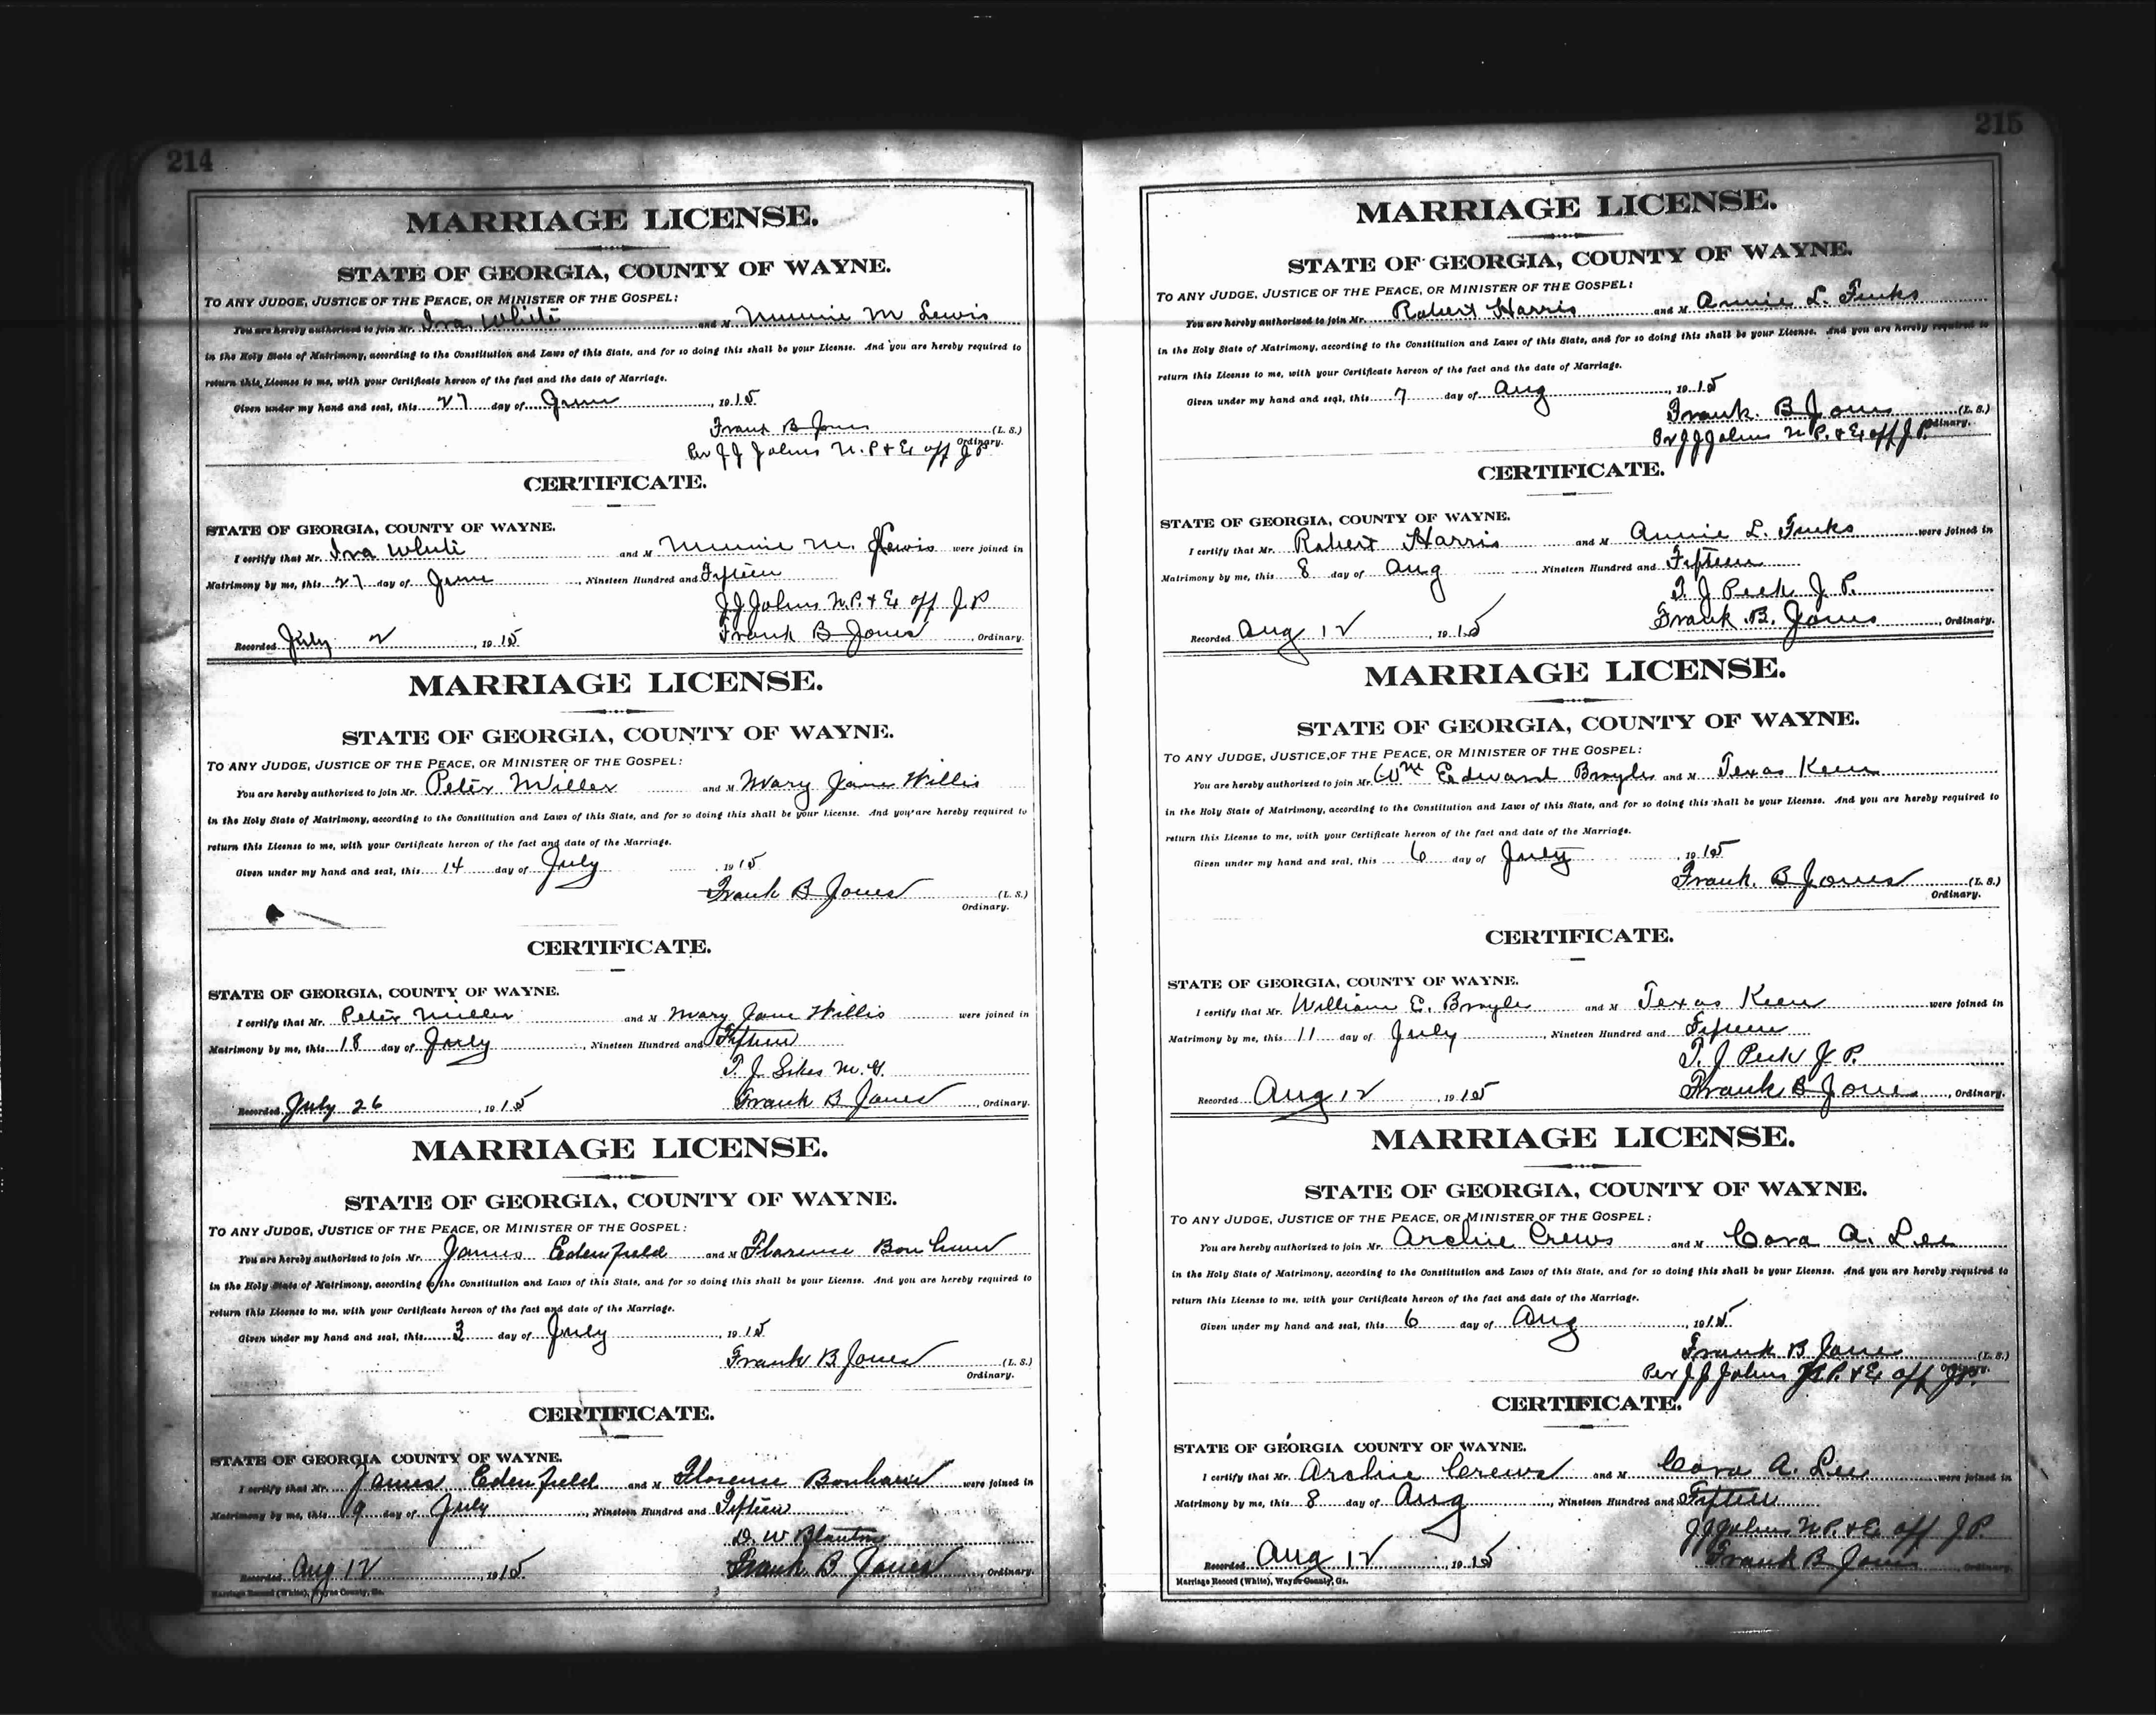 214
MARRIAGE LICENSE.
STATE OF GEORGIA, COUNTY OF WAYNE.
TO ANY JUDGE, JUSTICE OF THE PEACE, OR MINISTER OF THE GOSPEL:
You are hereby authorized to join Mr. Ira White and M Minnie M Lewis
in the Holy State of Matrimony, according to the Constitution and Laws of this State, and for so doing this shall be your License. And you are hereby required to
return this License to me, with your Certificate hereon of the fact and the date of Marriage.
Given under my hand and seal, this 27 day of June, 1915
Frank B Jones (L. S.)
Ordinary.
Per J J Johns N. P & Ex off J P
CERTIFICATE.
STATE OF GEORGIA, COUNTY OF WAYNE.
I certify that Mr. Ira White and M Minnie M. Lewis were joined in
Matrimony by me, this 27 day of June, Nineteen Hundred and Fifteen
J J Johns N. P. & Ex off J. P
Recorded July 2, 1915 Frank B Jones, Ordinary.
MARRIAGE LICENSE.
STATE OF GEORGIA, COUNTY OF WAYNE.
TO ANY JUDGE, JUSTICE OF THE PEACE, OR MINISTER OF THE GOSPEL:
You are hereby authorized to join Mr. Peter Miller and M Mary Jane Willis
in the Holy State of Matrimony, according to the Constitution and Laws of this State, and for so doing this shall be your License. And you are hereby required to
return this License to me, with your Certificate hereon of the fact and date of the Marriage.
Given under my hand and seal, this 14 day of July, 1915
Frank B Jones (L. S.)
Ordinary.
CERTIFICATE.
STATE OF GEORGIA, COUNTY OF WAYNE.
I certify that Mr. Peter Miller and M Mary Jane Willis were joined in
Matrimony by me, this 18 day of July, Nineteen Hundred and Fifteen
T. J. Sikes M. G.
Recorded July 26, 1915 Frank B Jones, Ordinary.
MARRIAGE LICENSE.
STATE OF GEORGIA, COUNTY OF WAYNE.
TO ANY JUDGE, JUSTICE OF THE PEACE, OR MINISTER OF THE GOSPEL:
You are hereby authorized to join Mr. James Edenfield and M Florence Bonham
in the Holy State of Matrimony, according to the Constitution and Laws of this State, and for so doing this shall be your License. And you are hereby required to
return this License to me, with your Certificate hereon of the fact and date of the Marriage.
Given under my hand and seal, this 3 day of July, 1915
Frank B Jones (L. S.)
Ordinary.
CERTIFICATE.
STATE OF GEORGIA COUNTY OF WAYNE.
I certify that Mr. James Edenfield and M Florence Bonham were joined in
Matrimony by me, this 9 day of July, Nineteen Hundred and Fifteen
D. W Blanton
Recorded Aug 12, 1915 Frank B Jones, Ordinary.
Marriage Record (White), Wayne County, Ga.
215
MARRIAGE LICENSE.
STATE OF GEORGIA, COUNTY OF WAYNE.
TO ANY JUDGE, JUSTICE OF THE PEACE, OR MINISTER OF THE GOSPEL:
You are hereby authorized to join Mr. Robert Harris and M Annie L.
in the Holy State of Matrimony, according to the Constitution and Laws of this State, and for so doing this shall be your License. And you are hereby required to
return this License to me, with your Certificate hereon of the fact and the date of Marriage.
Given under my hand and seal, this 7 day of Aug, 1915
Frank. B Jones (L. S.)
Ordinary.
Per J J Johns N P. & Ex off J. P.
CERTIFICATE.
STATE OF GEORGIA, COUNTY OF WAYNE.
I certify that Mr. Robert Harris and M Annie L. were joined in
Matrimony by me, this 8 day of Aug, Nineteen Hundred and Fifteen
T. J Peek J. P.
Recorded Aug 12, 1915 Frank. B. Jones, Ordinary.
MARRIAGE LICENSE.
STATE OF GEORGIA, COUNTY OF WAYNE.
TO ANY JUDGE, JUSTICE OF THE PEACE, OR MINISTER OF THE GOSPEL:
You are hereby authorized to join Mr. Wm Edward and M Texas Keen
in the Holy State of Matrimony, according to the Constitution and Laws of this State, and for so doing this shall be your License. And you are hereby required to
return this License to me, with your Certificate hereon of the fact and date of the Marriage.
Given under my hand and seal, this 6 day of July, 1915
Frank. B Jones (L. S.)
Ordinary.
CERTIFICATE.
STATE OF GEORGIA, COUNTY OF WAYNE.
I certify that Mr. William E. and M Texas Keen were joined in
Matrimony by me, this 11 day of July, Nineteen Hundred and Fifteen
T. J Peek J P.
Recorded Aug 12, 1915 Frank B Jones, Ordinary.
MARRIAGE LICENSE.
STATE OF GEORGIA, COUNTY OF WAYNE.
TO ANY JUDGE, JUSTICE OF THE PEACE, OR MINISTER OF THE GOSPEL:
You are hereby authorized to join Mr. Archie Crews and M Cora A. Lee
in the Holy State of Matrimony, according to the Constitution and Laws of this State, and for so doing this shall be your License. And you are hereby required to
return this License to me, with your Certificate hereon of the fact and date of the Marriage.
Given under my hand and seal, this 6 day of Aug, 1915
Frank B Jones (L. S.)
Ordinary.
Per J J Johns N. P. & Ex off J. P.
CERTIFICATE.
STATE OF GEORGIA COUNTY OF WAYNE.
I certify that Mr. Archie Crews and M Cora A. Lee were joined in
Matrimony by me, this 8 day of Aug, Nineteen Hundred and Fifteen
J J Johns N P. & Ex off J P.
Recorded Aug 12, 1915 Frank B Jones, Ordinary.
Marriage Record (White), Wayne County, Ga.